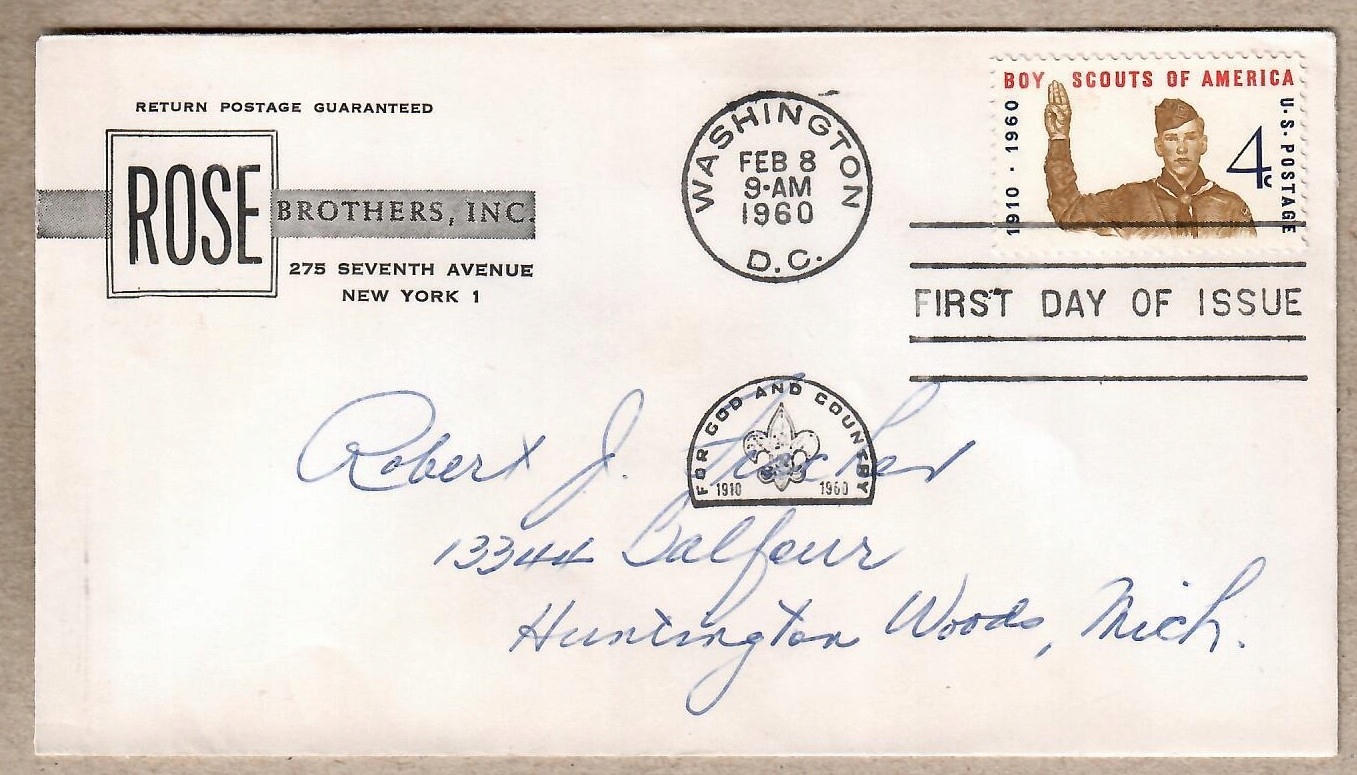 RETURN POSTAGE GUARANTEED
ROSE
BROTHERS, INC.
275 SEVENTH AVENUE
NEW YORK 1
WASHINGTON
FEB 8
9·AM
1960
D.C.
BOY SCOUTS OF AMERICA
1910 · 1960
4c
U·S·POSTAGE
FIRST DAY OF ISSUE
FOR GOD AND COUNTRY
1910 1960
Robert J.
13344 Balfour
Huntington Woods, Mich.